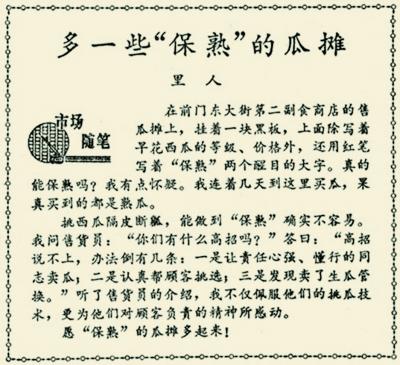 多一些“保熟”的瓜摊
里 人
市场
随笔
在前门东大街第二副食商店的售
瓜摊上，挂着一块黑板，上面除写着
早花西瓜的等级、价格外，还用红笔
写着“保熟”两个醒目的大字。真的
能保熟吗？我有点怀疑。我连着几天到这里买瓜，果
真买到的都是熟瓜。
挑西瓜隔皮断瓤，能做到“保熟”确实不容易。
我问售货员：“你们有什么高招吗？”答曰：“高招
说不上，办法倒有几条：一是让责任心强、懂行的同
志卖瓜；二是认真帮顾客挑选；三是发现卖了生瓜管
换。”听了售货员的介绍，我不仅佩服他们的挑瓜技
术，更为他们对顾客负责的精神所感动。
愿“保熟”的瓜摊多起来！